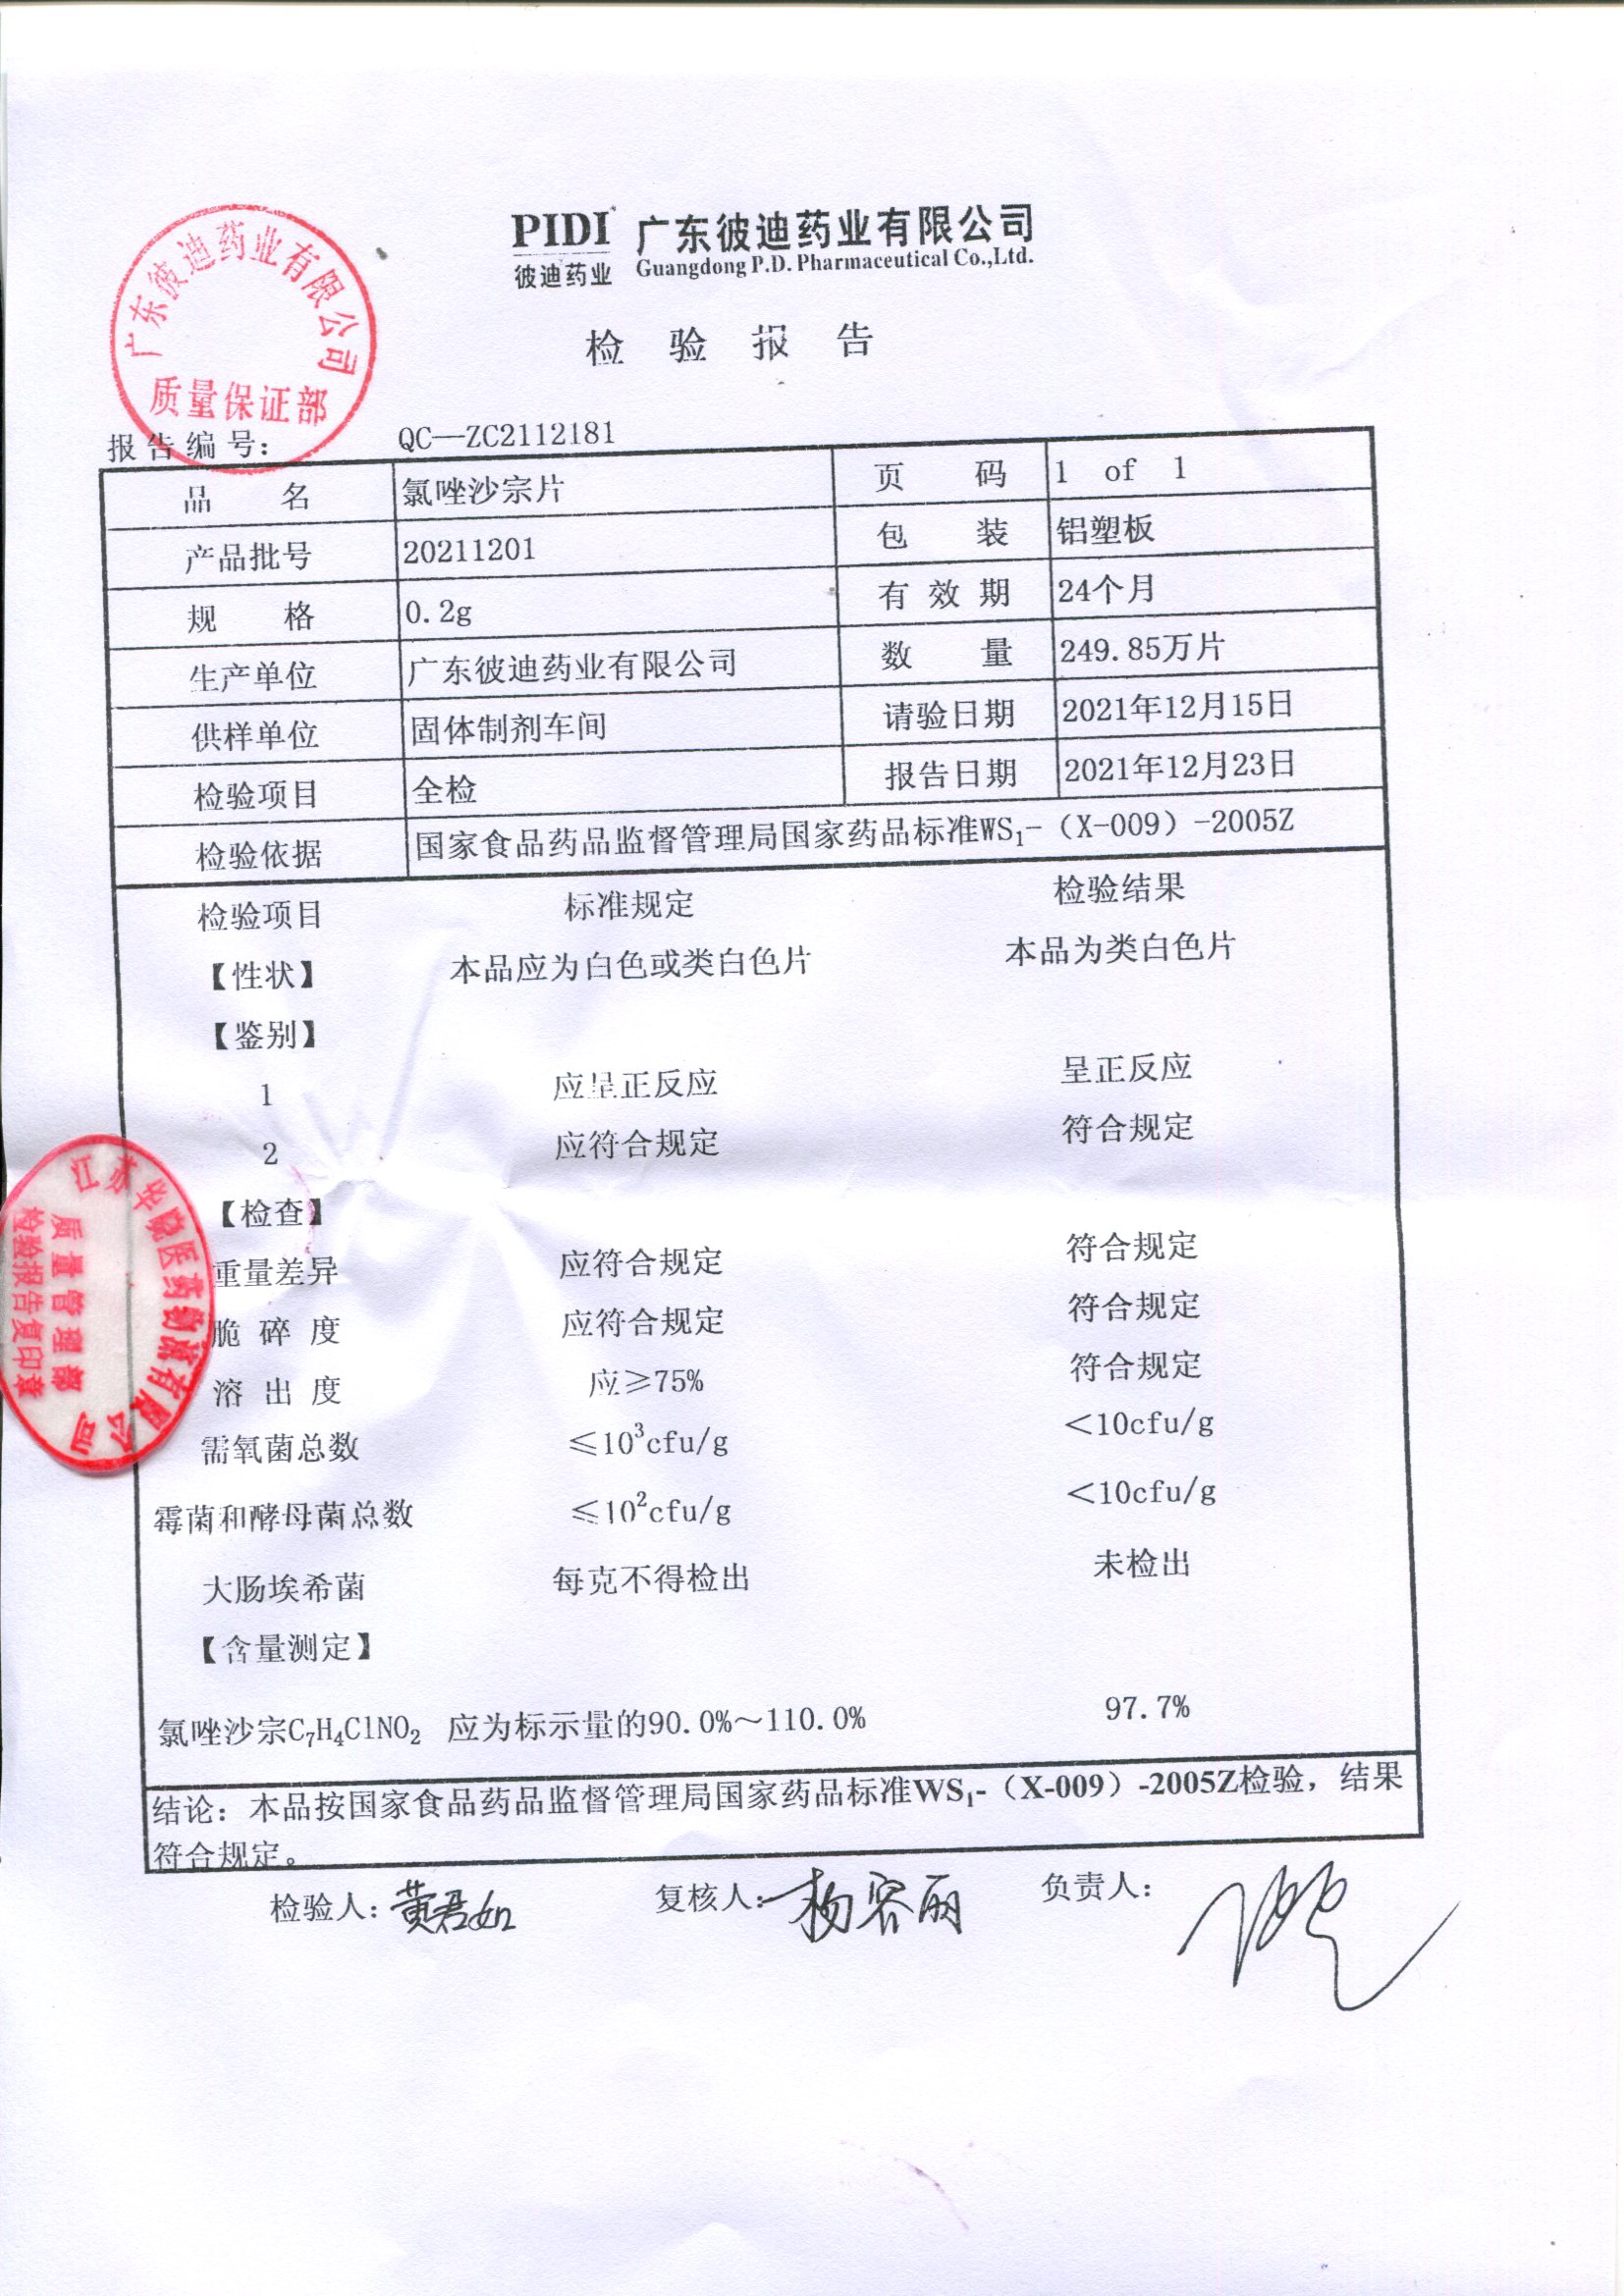 PIDI 广东彼迪药业有限公司
彼迪药业 Guangdong P.D. Pharmaceutical Co.,Ltd.
检 验 报 告
广东彼迪药业有限公司
质量保证部
报告编号: QC—ZC2112181
品 名 氯唑沙宗片 页 码 1 of 1
产品批号 20211201 包 装 铝塑板
规 格 0.2g 有 效 期 24个月
生产单位 广东彼迪药业有限公司 数 量 249.85万片
供样单位 固体制剂车间 请验日期 2021年12月15日
检验项目 全检 报告日期 2021年12月23日
检验依据 国家食品药品监督管理局国家药品标准WS₁-（X-009）-2005Z
检验项目 标准规定 检验结果
【性状】 本品应为白色或类白色片 本品为类白色片
【鉴别】
1 应呈正反应 呈正反应
2 应符合规定 符合规定
【检查】
重量差异 应符合规定 符合规定
脆 碎 度 应符合规定 符合规定
溶 出 度 应≥75% 符合规定
需氧菌总数 ≤10³cfu/g <10cfu/g
霉菌和酵母菌总数 ≤10²cfu/g <10cfu/g
大肠埃希菌 每克不得检出 未检出
【含量测定】
氯唑沙宗C₇H₄ClNO₂ 应为标示量的90.0%～110.0% 97.7%
结论：本品按国家食品药品监督管理局国家药品标准WS₁-（X-009）-2005Z检验，结果
符合规定。
检验人: 黄君如 复核人: 杨容丽 负责人:
江苏华晓医药物流有限公司
质量管理部
检验报告复印章